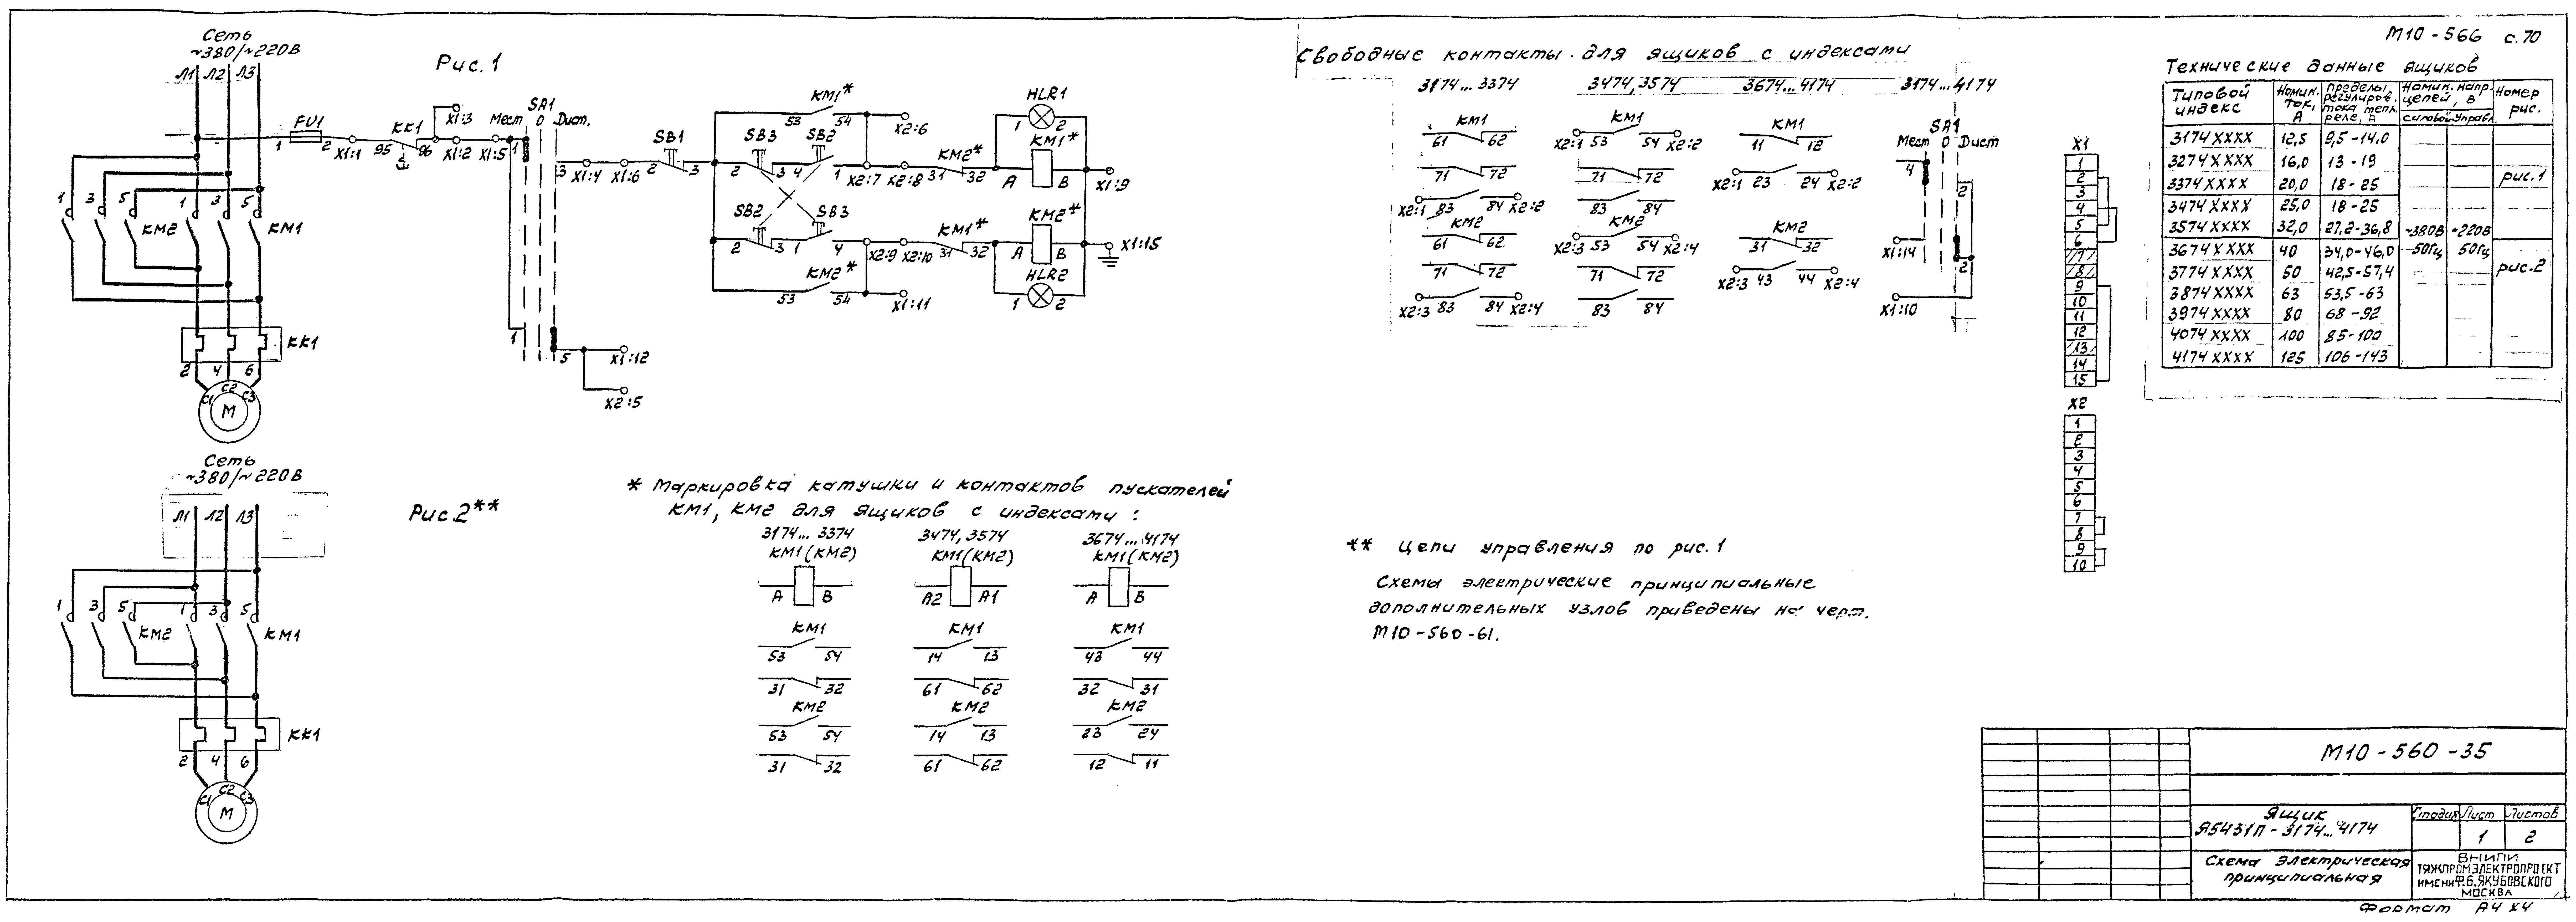 М10-566 с.70
Сеть
~380/~220В
Л1 Л2 Л3
Рис.1
FU1
1 2
X1:1
KK1
95 96
X1:3
X1:2 X1:5
SA1
Мест 0 Дист.
1
3 X1:4 X1:6
SB1
2 3
KM1*
53 54
X2:6
SB3 SB2
2 3 4 1
X2:7 X2:8
KM2*
31 32
HLR1
1 2
KM1*
A B
X1:9
SB2 SB3
2 3 1 4
X2:9 X2:10
KM1*
31 32
KM2*
A B
X1:15
HLR2
1 2
KM2*
53 54
X1:11
1
5 X1:12
X2:5
1 3 5 KM2 1 3 5 KM1
KK1
2 4 6
C1 C2 C3
М
Сеть
~380/~220В
Л1 Л2 Л3
Рис.2**
1 3 5 KM2 1 3 5 KM1
KK1
2 4 6
C1 C2 C3
М
* Маркировка катушки и контактов пускателей
КМ1, КМ2 для ящиков с индексами:
3174... 3374 3474, 3574 3674... 4174
KM1(KM2) KM1(KM2) KM1(KM2)
A B A2 A1 A B
KM1 KM1 KM1
53 54 14 13 43 44
31 32 61 62 32 31
KM2 KM2 KM2
53 54 14 13 23 24
31 32 61 62 12 11
Свободные контакты для ящиков с индексами
3174... 3374 3474, 3574 3674... 4174 3174... 4174
KM1 KM1 KM1 SA1
61 62 X2:1 53 54 X2:2 11 12 Мест 0 Дист
71 72 71 72 X2:1 23 24 X2:2 4 2
X2:1 83 84 X2:2 83 84
KM2 KM2 KM2
61 62 X2:3 53 54 X2:4 31 32 X1:14
71 72 71 72 X2:3 43 44 X2:4 2
X2:3 83 84 X2:4 83 84 X1:10
** Цепи управления по рис. 1
Схемы электрические принципиальные
дополнительных узлов приведены на черт.
М10-560-61.
X1
1
2
3
4
5
6
7
8
9
10
11
12
13
14
15
X2
1
2
3
4
5
6
7
8
9
10
Технические данные ящиков
Типовой индекс Номин. ток, А Пределы регулиров. тока тепл. реле, А Номин. напр. цепей, В Номер рис.
силовой управл.
3174XXXX 12,5 9,5-14,0
3274XXXX 16,0 13-19
3374XXXX 20,0 18-25 рис.1
3474XXXX 25,0 18-25
3574XXXX 32,0 27,2-36,8 ~380В ~220В
3674XXXX 40 34,0-46,0 50Гц 50Гц
3774XXXX 50 42,5-57,4 рис.2
3874XXXX 63 53,5-63
3974XXXX 80 68-92
4074XXXX 100 85-100
4174XXXX 125 106-143
М10-560-35
Ящик
Я5431П-3174...4174
Стадия Лист Листов
1 2
Схема электрическая
принципиальная
ВНИПИ
ТЯЖПРОМЭЛЕКТРОПРОЕКТ
ИМЕНИ Ф.Б.ЯКУБОВСКОГО
МОСКВА
Формат А4х4